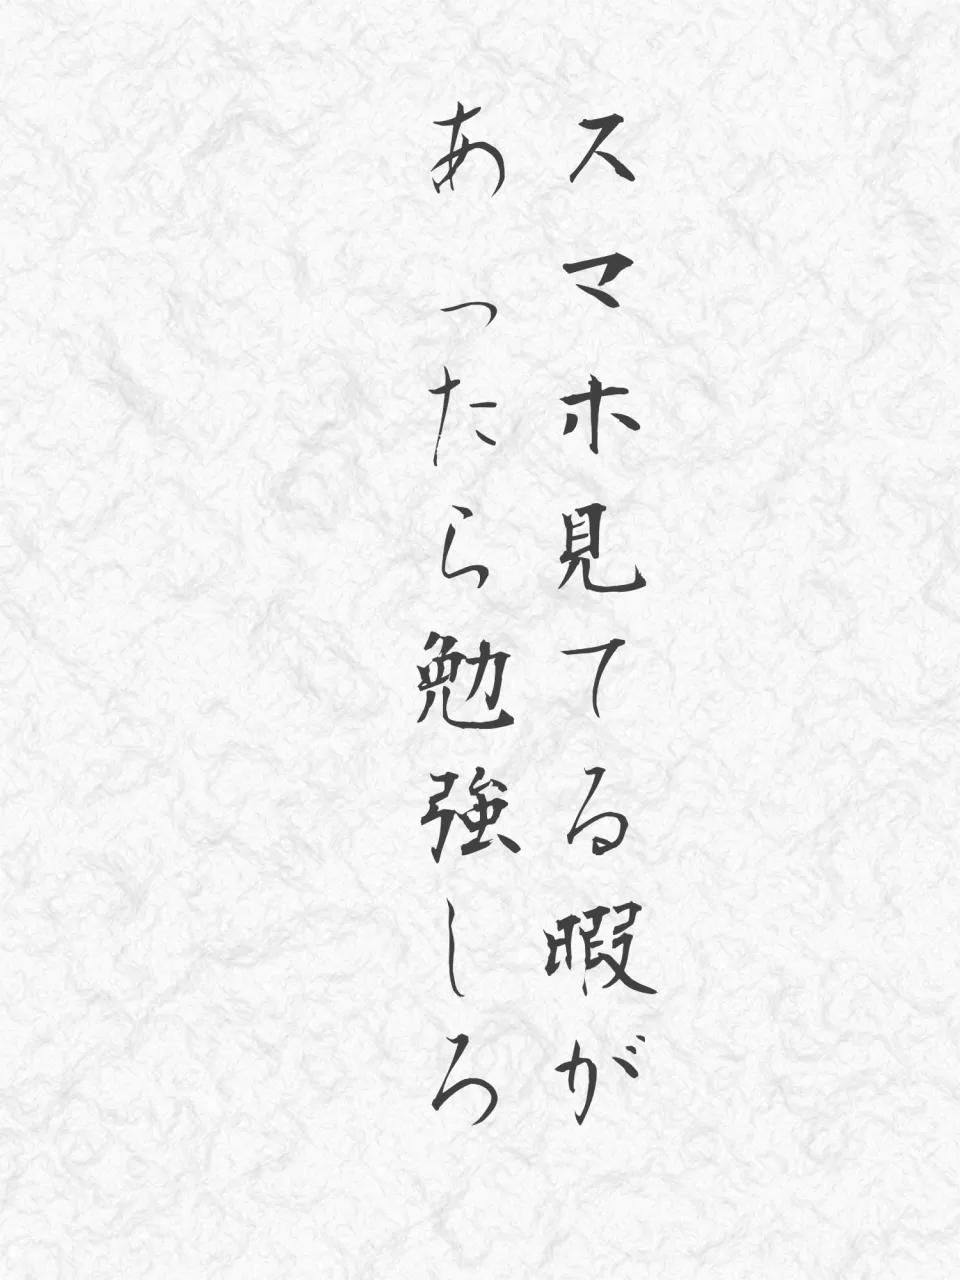 スマホ見てる暇が
あったら勉強しろ